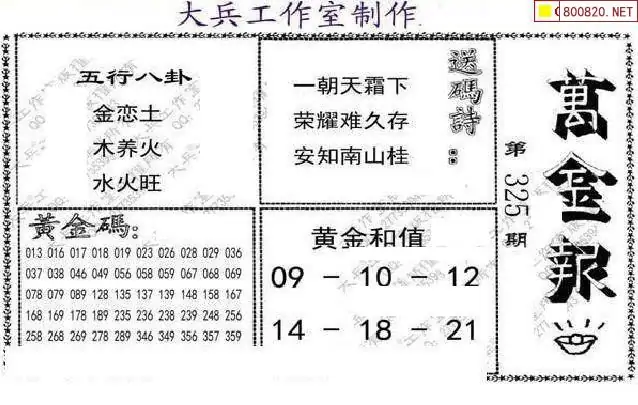 大兵工作室制作
800820.NET
五行八卦
金恋土
木养火
水火旺
送碼詩:
一朝天霜下
荣耀难久存
安知南山桂
萬金報
第325期
黃金碼:
013 016 017 018 019 023 026 028 029 036
037 038 046 049 056 058 059 067 068 069
078 079 089 128 135 137 139 148 158 167
168 169 178 189 235 236 238 239 248 256
258 268 269 278 289 346 349 356 357 359
黄金和值
09 - 10 - 12
14 - 18 - 21